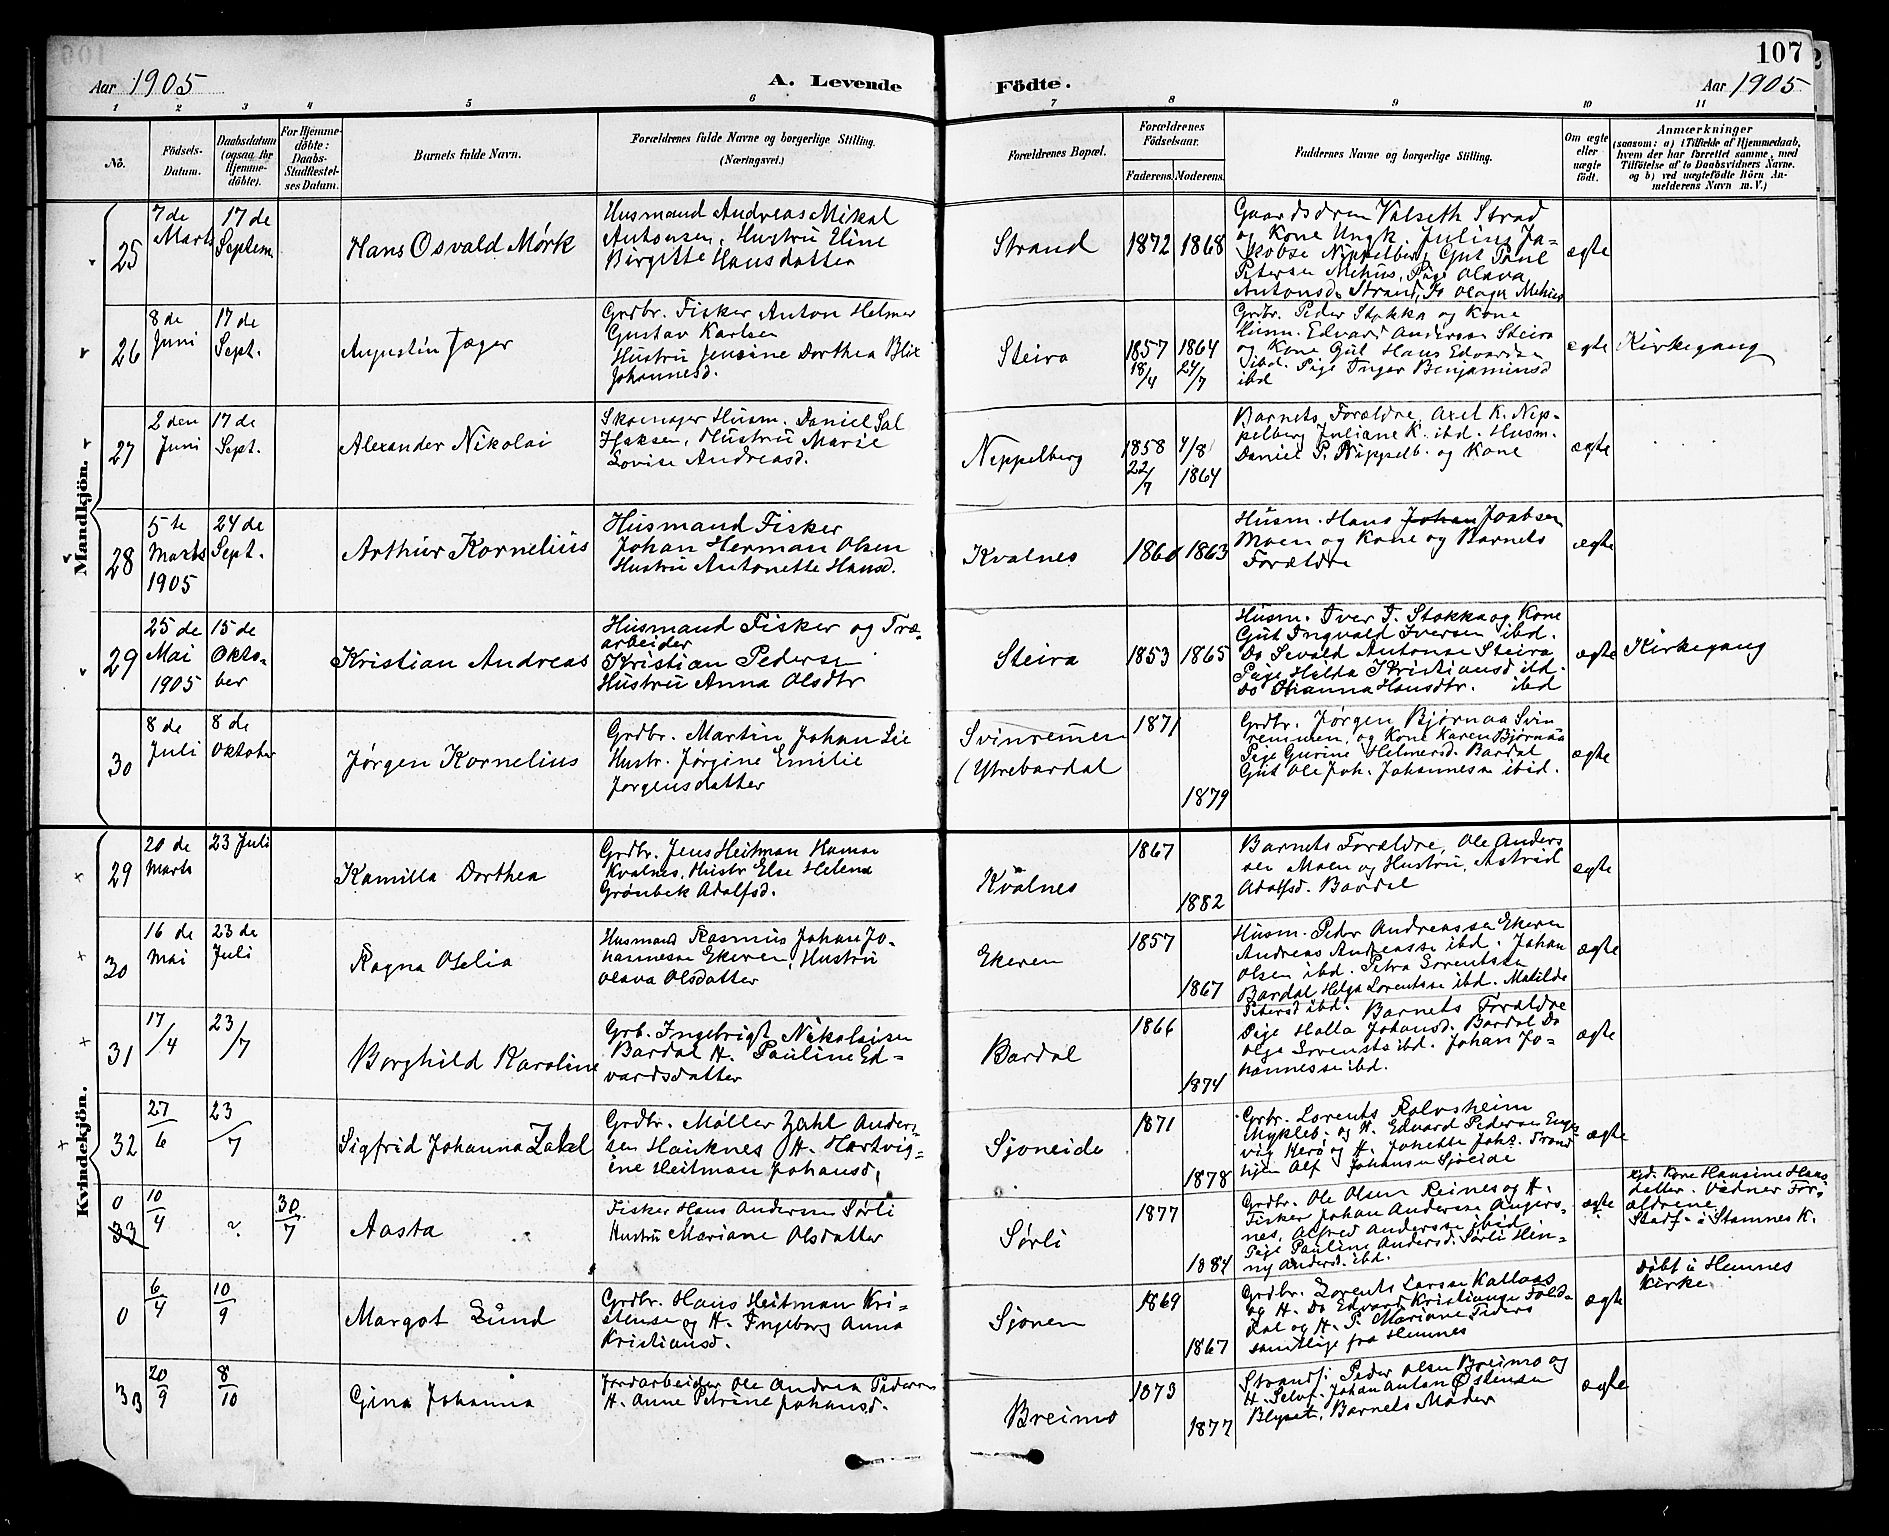 107
Aar 1905
A. Levende
Födte.
Aar 1905
1 2 3 4 5 6 7 8 9 10 11
No.
Födsels-
Datum.
Daabsdatum
(ogsaa for
Hjemme-
döbte).
For Hjemme-
döbte:
Daabs-
Stadfæstel-
ses Datum.
Barnets fulde Navn.
Forældrenes fulde Navne og borgerlige Stilling.
(Næringsvei.)
Forældrenes Bopæl.
Forældrenes
Födselsaar.
Faderens. Moderens.
Faddernes Navne og borgerlige Stilling.
Om ægte
eller
uægte
født.
Anmærkninger
(saasom: a) i Tilfælde af Hjemmedaab,
hvem der har forrettet samme, med
Tilföielse af to Daabsvidners Navne.
og b) ved uægtefödte Börn An-
melderens Navn m. V.)
Mandkjön.
25
7 de
Marts
17 de
Septem
Hans Osvald Mørk
Husmand Andreas Mikal
Antonsen, Hustru Eline
Birgitte Hansdatter
Strand
1872 1868
Gaardsdren Valseth Strad
og Kone Ungk. Julius Ja-
kobse Nippelberg Gut Paul
Petersen Mehus, Pige Olava
Antonsd. Strand, Do Olaga Mehus
ægte
26
8 de
Juni
17 de
Sept.
Augustin Jæger
Grdbr. Fisker Anton Helmer
Gustav Karlsen
Hustru Jensine Dorthea Blix
Johannesd.
Steiro
1857 18/4
1864 24/7
Grdbr. Peder Stokka og Kone
Husm. Edvard Anderssen Steira
og Kone Gut Hans Edvardsen
ibid. Pige Inger Benjaminsd
ibd
ægte
Kirkegang
27
2 den
Juni
17 de
Sept.
Alexander Nikolai
Skomager Husm. Daniel Sal
Isaksen, Hustru Marie
Lovise Andreasd.
Neppelberg
1858 22/7
4/8 1864
Barnets Forældre, Axel K. Nip-
pelberg Juliane K. ibd. Husm.
Daniel P. Nippelb. og Kone
ægte
28
5 te
Marts
1905
24 de
Sept.
Arthur Kornelius
Husmand Fisker
Johan Herman Olsen
Hustru Antonette Hansd.
Kvalnes
1860 1863
Husm. Hans Johan Joabsen
Moen og Kone og Barnets
Forældre
ægte
29
25 de
Mai
1905
15 de
Okto-
ber
Kristian Andreas
Husmand Fisker og Træ-
arbeider
Kristian Pedersen
Hustru Anna Olsdtr
Steira
1853 1865
Husm. Iver J. Stokka og Kone
Gut Ingvald Iversen ibd.
Do Sevald Antonse Steira
Pige Hilda Kristiansd ibd.
Do Stianna Hansdtr. ibd
ægte
Kirkegang
30
8 de
Juli
8 de
Oktober
Jørgen Kornelius
Grdbr. Martin Johan Lie
Hustr. Jørgine Emilie
Jørgensdatter
Svinremmen
(Ytrebardal
1871
1879
Grdbr. Jørgen Bjørnaa Svin
remmen, og Kone Karen Bjørnaa
Pige Gurine Helmersd. Bardal
Gut Ole Joh. Johannesen ibid.
ægte
Kvindekjön.
29
20 de
Marts
23 Juli
Kamilla Dorthea
Grdbr. Jens Heitman Hansen
Kvalnes, Hustr Else Helena
Grönbek Adolfsd.
Kvalnes
1867
1882
Barnets Forældre, Ole Anders
sen Moen og Hustru, Astrid
Adolfsd. Bardal
ægte
30
16 de
Mai
23 de
Juli
Ragna Ofelia
Husmand Rasmus Johan Jo-
hannesse Ekeren, Hustru
Olava Olsdatter
Ekeren
1857
1867
Husm. Peder Andreassen Ekeren
Andreas Andreasse ibd. Johan
Olsen ibd. Petra Lorentsen
Bardal Helga Lorentsse ibd. Matilde
Petersd ibd.
ægte
31
17/4
23/7
Borghild Karoline
Grb. Ingebrigt Nikolaisen
Bardal H. Pauline Ed-
vardsdatter
Bardal
1866
1874
Barnets Forældre
Pige Halla Johansd. Bardal Do
Olga Lorentse ibd. Johan Jo-
hannesse ibd.
ægte
32
27/6
23/7
Sigfrid Johanna Zakel
Grdbr. Møller Zahl Anders-
sen Hauknes H. Hartvig-
ine Heitman Johansd.
Sjoneide
1871
1878
Grbr. Lorents Rolvsheim
Mykleb. og H. Edvard Pedersen Eng-
vig Herø og H. Johette Johs. Trond
hjem Alf Johansen Sjøeide
ægte
0
33
10/4
?
30/7
Aasta
Fisker Hans Andersen Sørli
Hustru Mariane Olsdatter
Sørli
1877
1884
Grdbr. Ole Olsen Reines og H.
Fisker Johan Anderssen Angers-
nes, Alfred Anderssen ibid
Pige Pauline Andersd. Sørli Hen-
ny Andersd. ibd.
ægte
Gjd. Kone Hansine Hans
datter. Vidner For-
ældrene
Stadf. i Stamnes K.
0
6/4
10/9
Margot Lund
Grdbr. Hans Heitman Kri-
stense og H. Ingeborg Anna
Kristiansd.
Sjonen
1869
1867
Grdbr. Lorents Larsen Kallaas
og H. Do Edvard Kristiansen Fald-
dal og H. P. Mariane Peders
samtlige fra Hemnes
ægte
døbt i Hemnes
Kirke
33
20/9
8/10
Gina Johanna
Jordarbeider Ole Andrea Pedersen
H. Anne Petrine Johansd.
Breimo
1873
1877
Strands. Peder Olsen Breimo og
H. Selvf. Johan Anton Østensen
Blyset, Barnets Moder
ægte